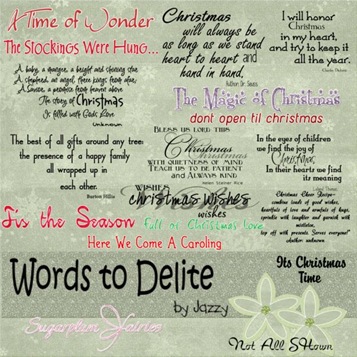 A Time of Wonder
The Stockings Were Hung...
A baby, a manger, a bright and shining star
A shepherd, an angel, three kings from afar
A Savior, a promise from heaven above
The story of Christmas
Is filled with God's Love
Unknown
Christmas
will always be
as long as we stand
heart to heart and
hand in hand.
Author: Dr. Seuss
I will honor
Christmas
in my heart,
and try to keep it
all the year.
Charles Dickens
The Magic of Christmas
dont open til christmas
The best of all gifts around any tree:
the presence of a happy family
all wrapped up in
each other.
Burton Hillis
Bless us Lord this
Christmas
with quietness of mind
Teach us to be patient
and always be kind
Helen Steiner Rice
In the eyes of children
we find the joy of
Christmas.
In their hearts we find
its meaning
wishes
christmas wishes
wishes
Christmas Cheer Recipe-
combine loads of good wishes,
heartfuls of love and armfuls of hugs,
sprinkle with laughter and garnish with
mistletoe,
top off with presents. Serves everyone!"
author unknown
Tis the Season
full of Christmas love
Here We Come A Caroling
Words to Delite
by Jazzy
Its Christmas
Time
Sugarplum Fairies
Not All SHown